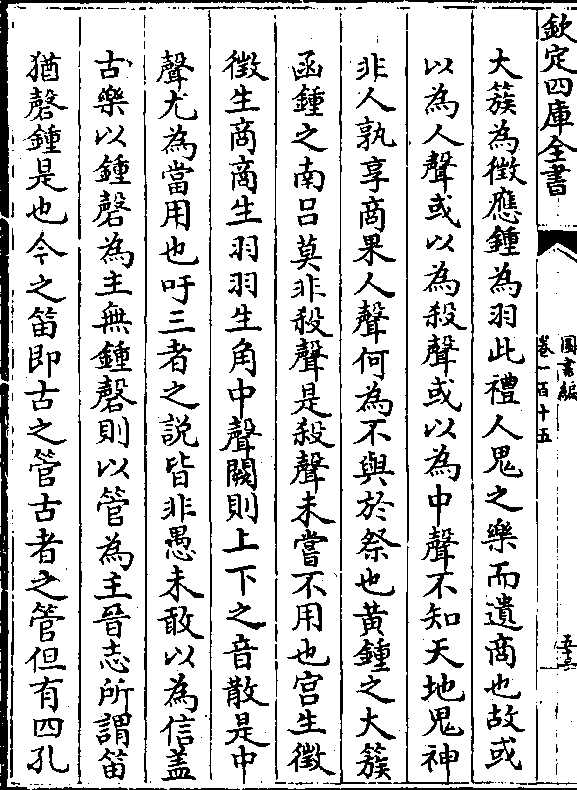 欽定四庫全書
圖書編
卷一百十五
大蔟為徴應鍾為羽此禮人鬼之樂而遺商也故或
以為人聲或以為殺聲或以為中聲不知天地鬼神
非人孰享商果人聲何為不與於祭也黃鍾之大蔟
函鍾之南吕莫非殺聲是殺聲未嘗不用也宫生徴
徴生商商生羽羽生角中聲闕則上下之音散是中
聲尤為當用也吁三者之説皆非愚未敢以為信盖
古樂以鍾磬為主無鍾磬則以管為主晉志所謂笛
猶磬鍾是也今之笛即古之管古者之管但有四孔